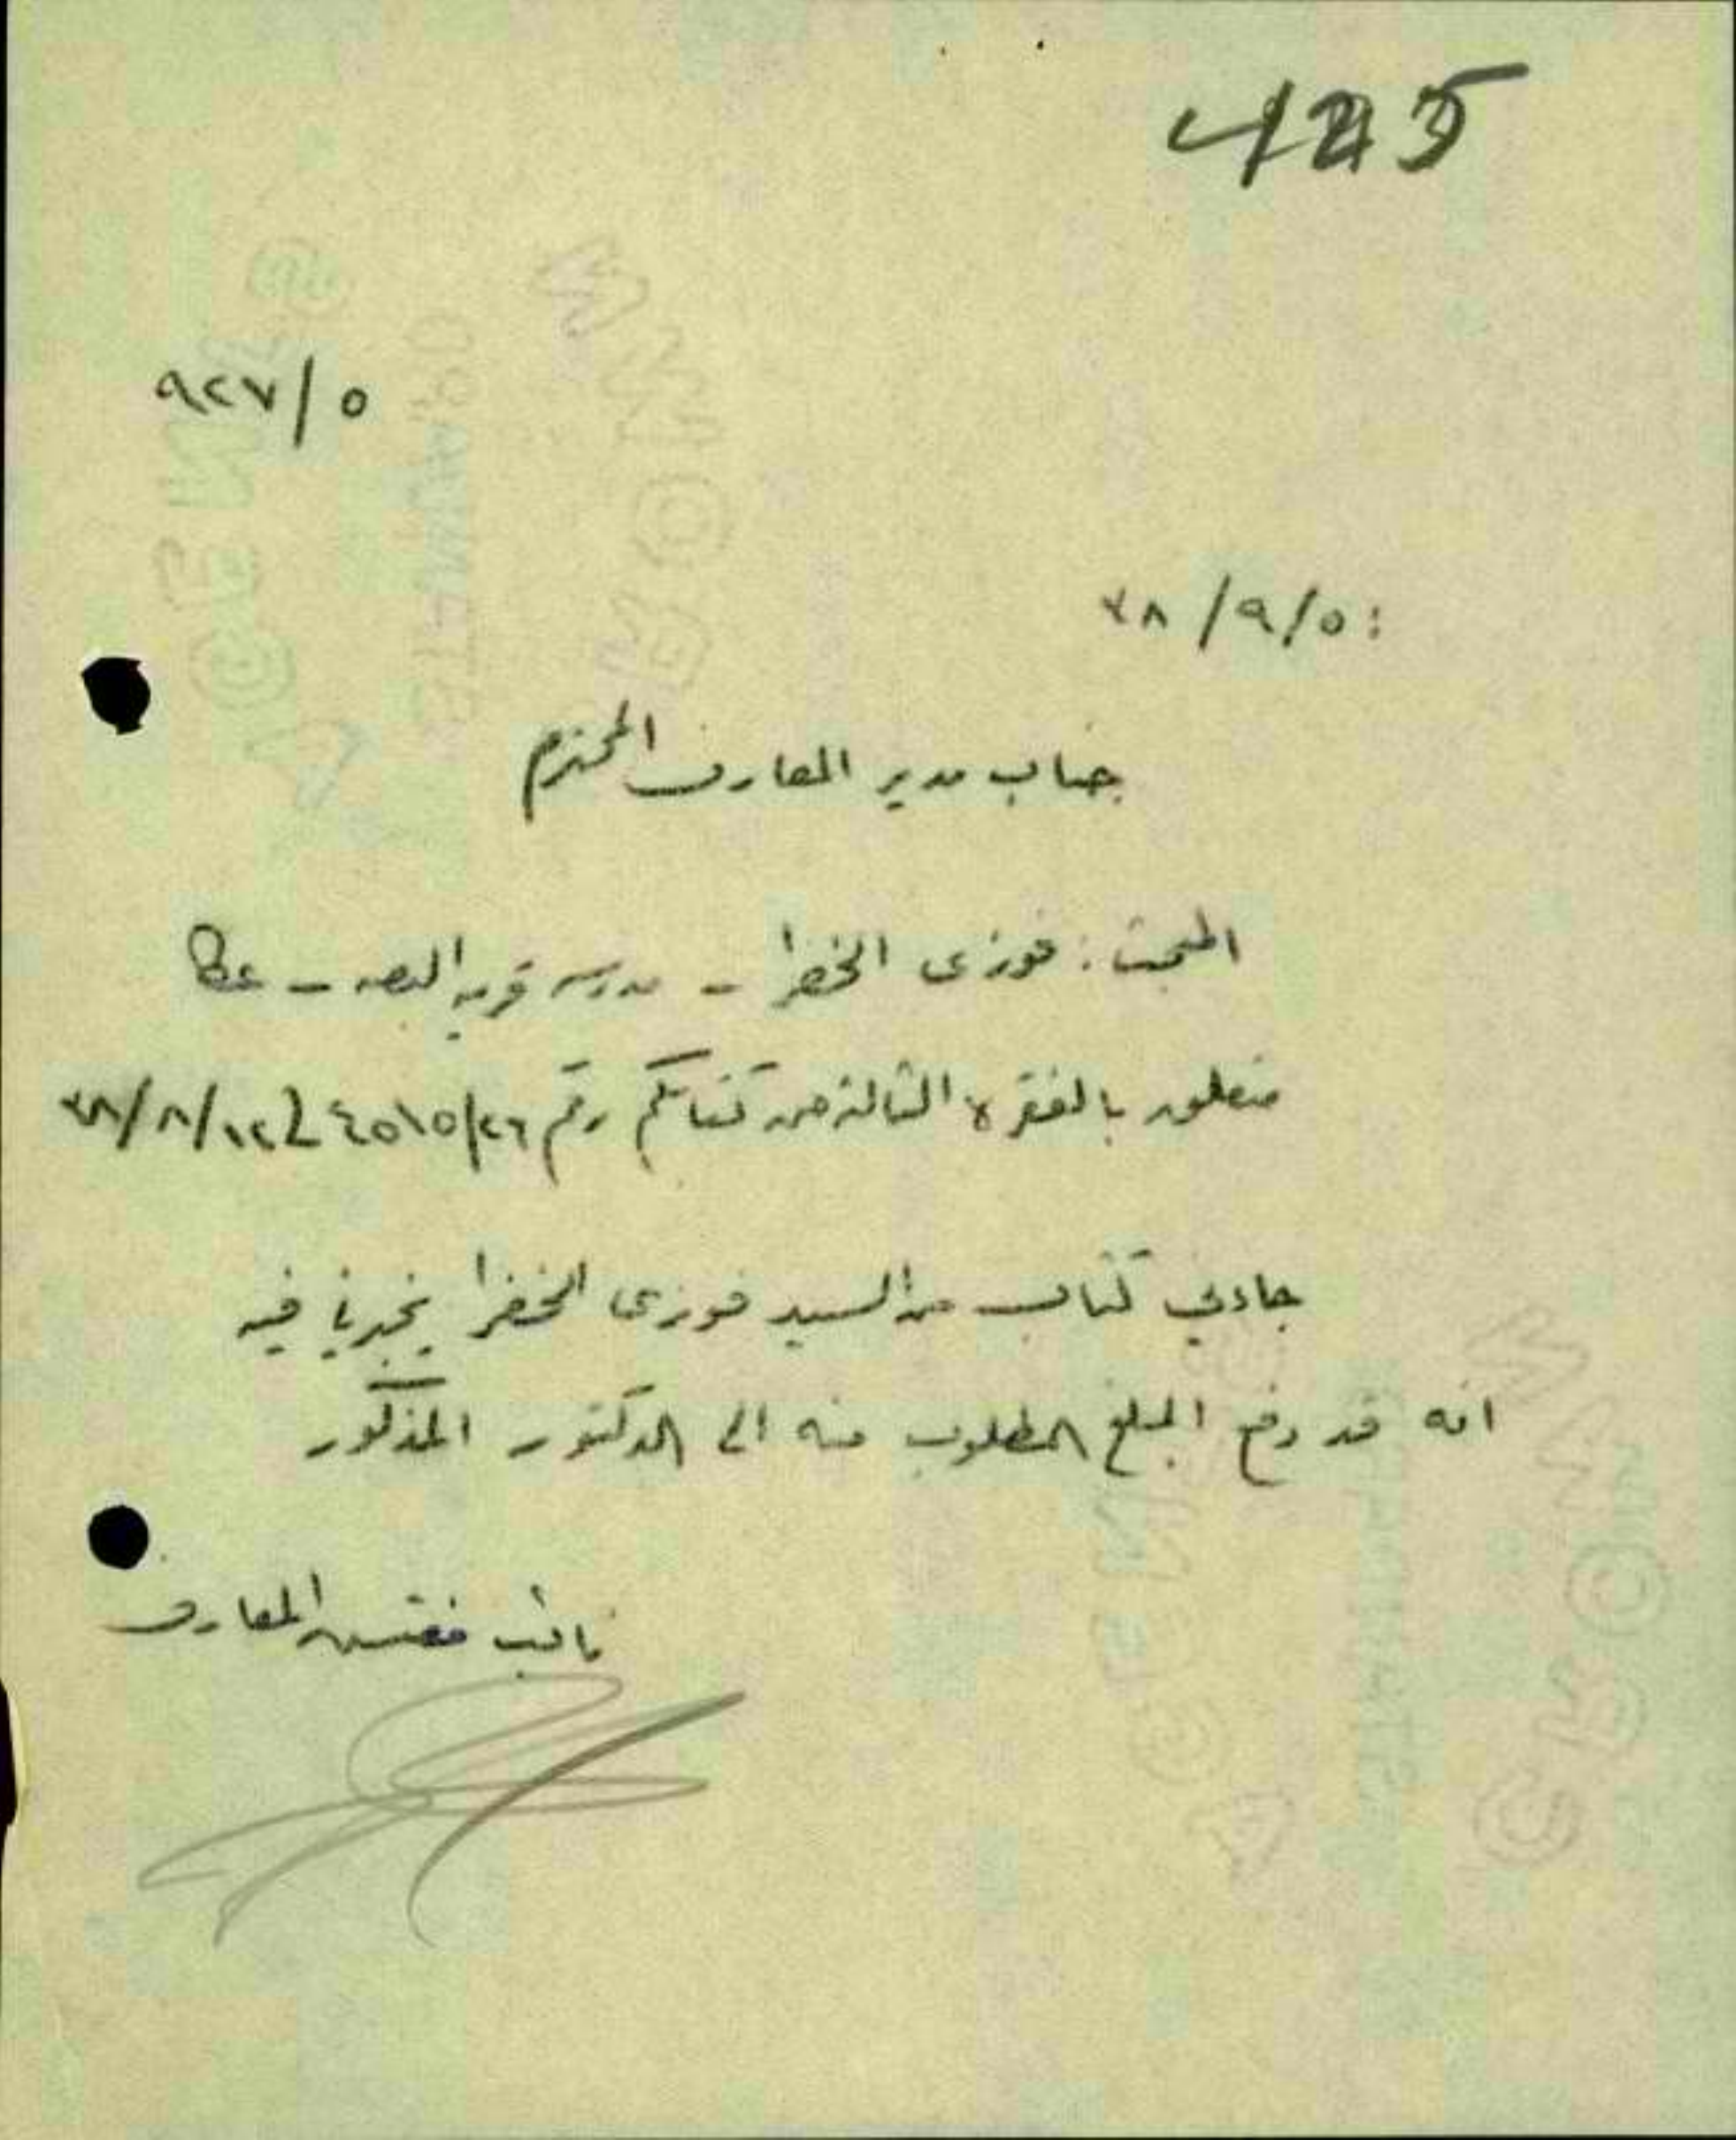 425
٩٢٧/٥
٥/٩/٣٨
جناب مدير المعارف المحترم
المبحث : فوزى الخضرا - مدرسة قرية البصه - عكا
متعلق بالفقرة الثالثة من كتابكم رقم ٤٥١٥/٢٦ ٣٨/٨/١٢
جاءني كتاب من السيد فوزى الخضرا يخبرنا فيه
انه قد دفع المبلغ المطلوب منه الى الدكتور المذكور
نائب مفتش المعارف